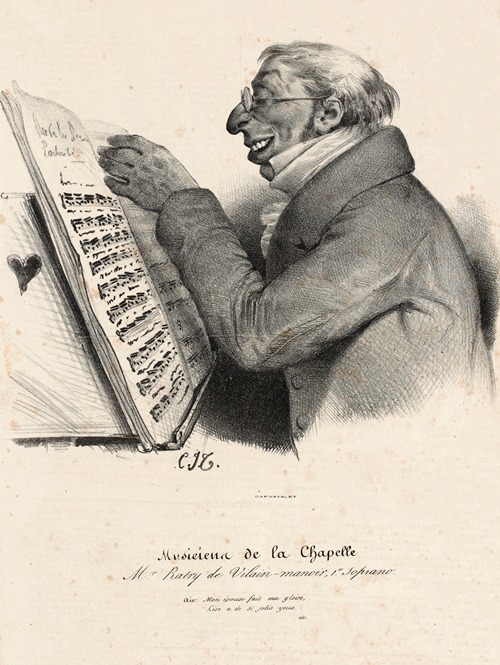 C.J.T.
CARNAVALET
Musiciens de la Chapelle
Mr Ratry de Vilain-manoir, 1er Soprano.
Air: Mon épouse fait ma gloire,
Lise a de si jolis yeux.
etc.